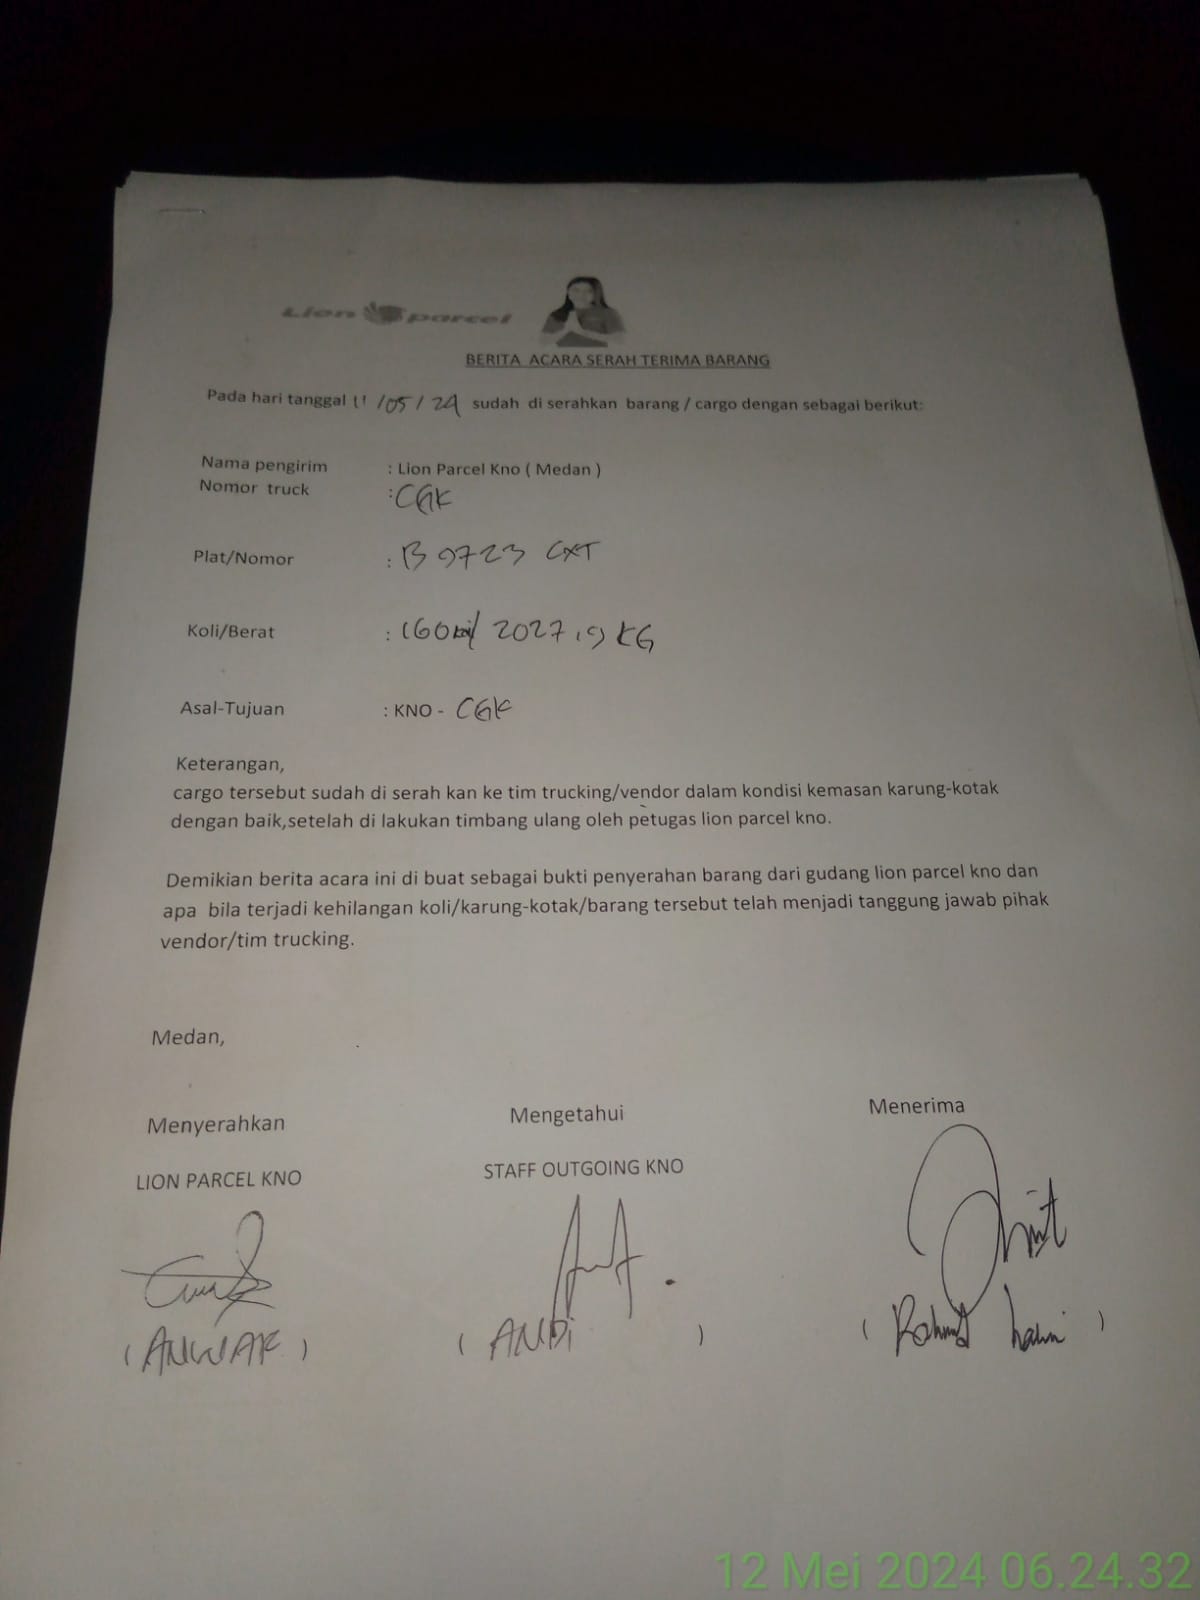 Lion parcel
BERITA ACARA SERAH TERIMA BARANG
Pada hari tanggal 11 /05 / 24 sudah di serahkan barang / cargo dengan sebagai berikut:
Nama pengirim : Lion Parcel Kno ( Medan )
Nomor truck : CGK
Plat/Nomor : B 9723 CXT
Koli/Berat : 160 koli/ 2027,9 KG
Asal-Tujuan : KNO - CGK
Keterangan,
cargo tersebut sudah di serah kan ke tim trucking/vendor dalam kondisi kemasan karung-kotak
dengan baik,setelah di lakukan timbang ulang oleh petugas lion parcel kno.
Demikian berita acara ini di buat sebagai bukti penyerahan barang dari gudang lion parcel kno dan
apa bila terjadi kehilangan koli/karung-kotak/barang tersebut telah menjadi tanggung jawab pihak
vendor/tim trucking.
Medan,
Menyerahkan Mengetahui Menerima
LION PARCEL KNO STAFF OUTGOING KNO
( ANWAR ) ( ANDi ) ( Rahmat )
12 Mei 2024 06.24.32